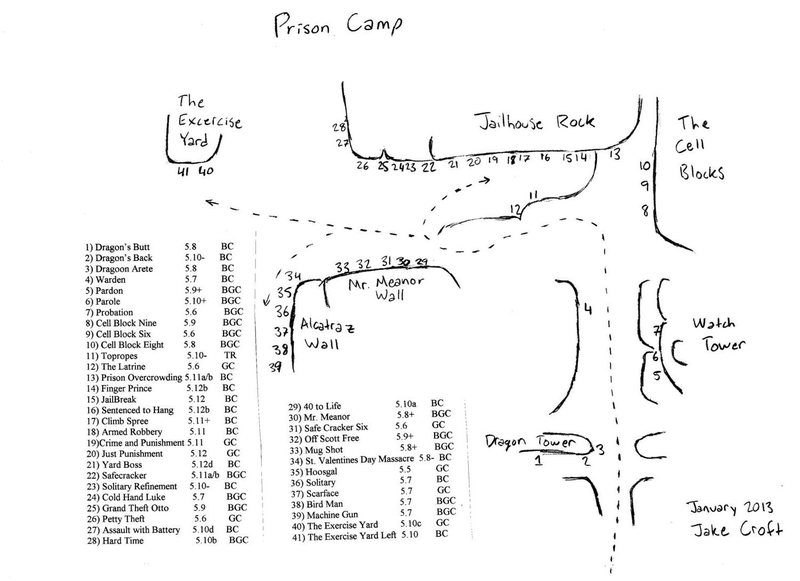 Prison Camp
The
Excercise
Yard
41 40
28
27
26 25 24 23 22 21 20 19 18 17 16 15 14 13
Jailhouse Rock
The
Cell
Blocks
10
9
8
11
12
33 32 31 30 29
Mr. Meanor
Wall
34
35
36
37
38
39
Alcatraz
Wall
4
7
6
5
Watch
Tower
Dragon Tower
1 2 3
1) Dragon's Butt 5.8 BC
2) Dragon's Back 5.10- BC
3) Dragoon Arete 5.8 BC
4) Warden 5.7 BC
5) Pardon 5.9+ BGC
6) Parole 5.10+ BGC
7) Probation 5.6 BGC
8) Cell Block Nine 5.9 BGC
9) Cell Block Six 5.6 BGC
10) Cell Block Eight 5.8 BGC
11) Topropes 5.10- TR
12) The Latrine 5.6 GC
13) Prison Overcrowding 5.11a/b BC
14) Finger Prince 5.12b BC
15) JailBreak 5.12 BC
16) Sentenced to Hang 5.12b BC
17) Climb Spree 5.11+ BC
18) Armed Robbery 5.11 BC
19)Crime and Punishment 5.11 GC
20) Just Punishment 5.12 GC
21) Yard Boss 5.12d BC
22) Safecracker 5.11a/b BGC
23) Solitary Refinement 5.10- BC
24) Cold Hand Luke 5.7 BGC
25) Grand Theft Otto 5.9 BGC
26) Petty Theft 5.6 GC
27) Assault with Battery 5.10d BC
28) Hard Time 5.10b BGC
29) 40 to Life 5.10a BC
30) Mr. Meanor 5.8+ BGC
31) Safe Cracker Six 5.6 GC
32) Off Scott Free 5.9+ BGC
33) Mug Shot 5.8+ BGC
34) St. Valentines Day Massacre 5.8- BC
35) Hoosgal 5.5 GC
36) Solitary 5.7 BC
37) Scarface 5.7 GC
38) Bird Man 5.7 BGC
39) Machine Gun 5.7 BGC
40) The Exercise Yard 5.10c GC
41) The Exercise Yard Left 5.10 BC
January 2013
Jake Croft